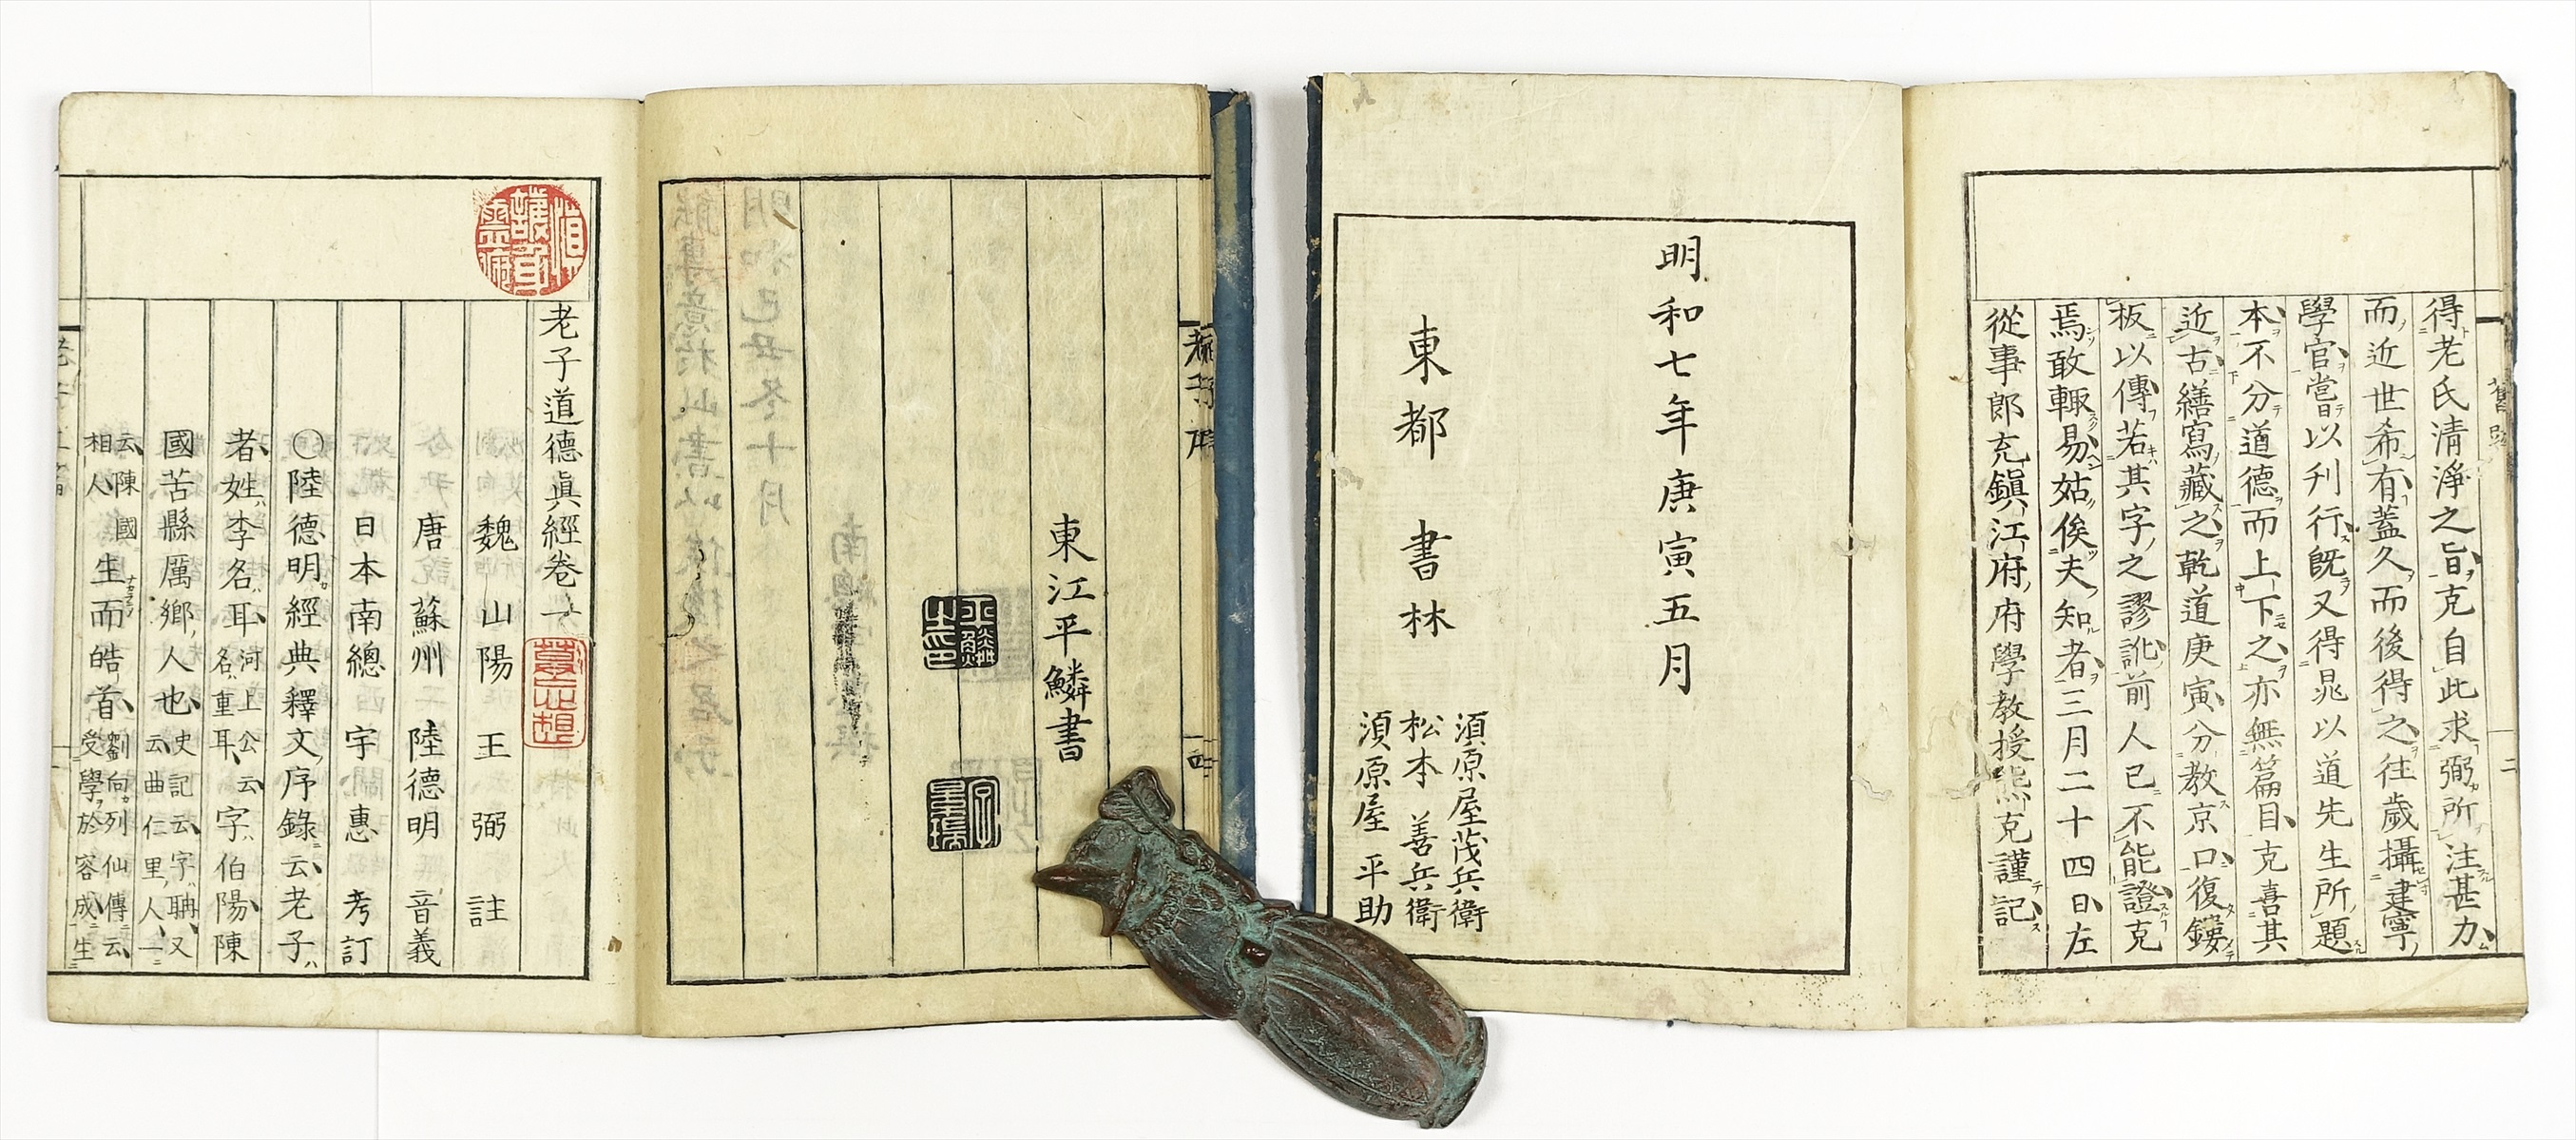 舊跋
二
得老氏清淨之旨克自此求弼所注甚力
而近世希有蓋久而後得之往歲攝建寧
學官嘗以刋行既又得晁以道先生所題
本不分道德而上下之亦無篇目克喜其
近古繕寫藏之乾道庚寅分教京口復鏤
板以傳若其字之謬訛前人已不能證克
焉敢輙易姑俟夫知者三月二十四日左
從事郎充鎮江府府學教授熊克謹記
明和七年庚寅五月
東都 書林
須原屋茂兵衛
松本善兵衛
須原屋平助
東江平鱗書
老子道德眞經卷一
魏 山陽 王弼 註
唐 蘇州 陸德明 音義
日本南總 宇惠 考訂
〇陸德明經典釋文序錄云老子
者姓李名耳河上公云名重耳字伯陽陳
國苦縣厲鄉人也史記云字聃又云曲仁里人一
云陳國相人生而皓首劉向列仙傳云受學於容成生